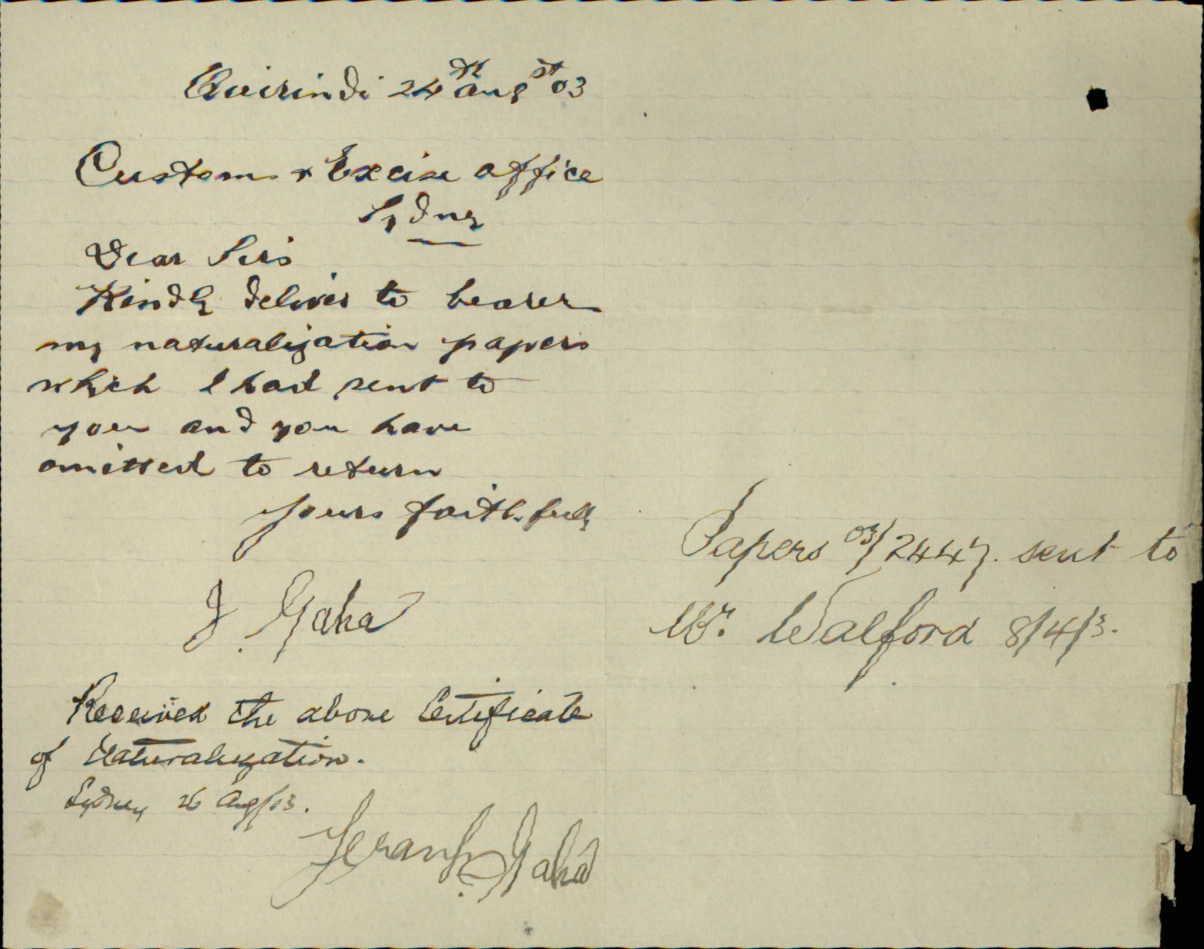 Quirindi 24th Augst 03
Custom & Excise office
Sydney
Dear Sirs
Kindly deliver to bearer
my naturalization papers
which I had sent to
you and you have
omitted to return
Yours faithfully
J. Gaha
Received the above Certificate
of Naturalization.
Sydney 26 Aug/03.
Gaha
Papers 03/2447. sent to
Mr. Walford 8/4/3.